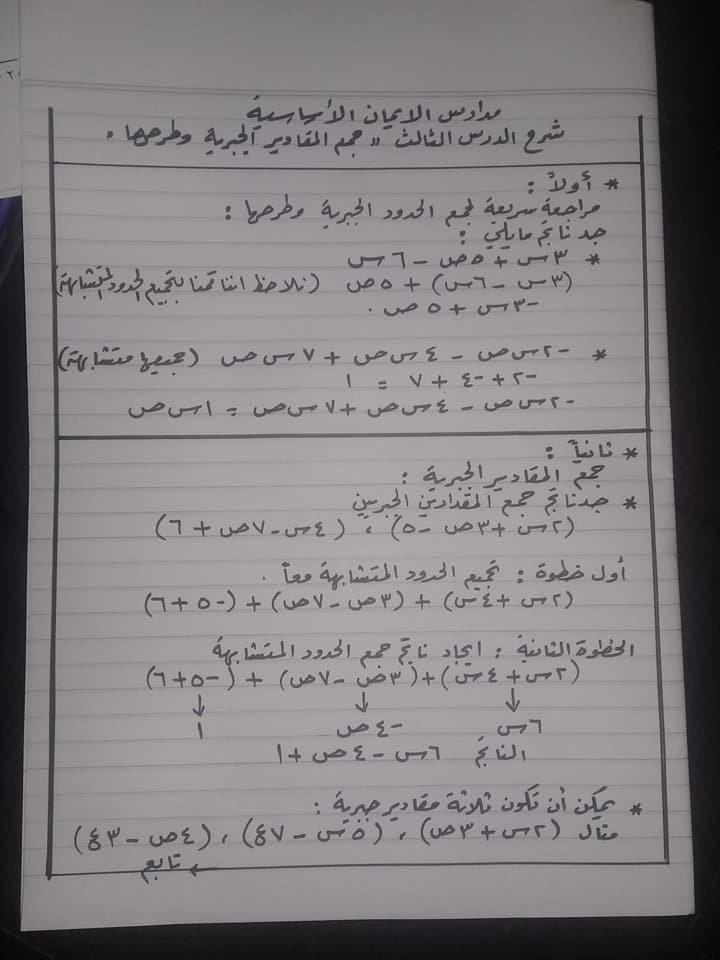 مدارس الايمان الأساسية
شرح الدرس الثالث " جمع المقادير الجبرية وطرحها "
* أولاً :
مراجعة سريعة لجمع الحدود الجبرية وطرحها :
جد ناتج مايلي :
* ٣س + ٥ص - ٦س
(٣س - ٦س) + ٥ص (نلاحظ اننا قمنا بتجميع الحدود المتشابهة)
-٣س + ٥ص .
* -٢س ص - ٤س ص + ٧س ص (جميعها متشابهة)
-٢ + -٤ + ٧ = ١
-٢س ص - ٤س ص + ٧س ص = ١س ص
* ثانياً :
جمع المقادير الجبرية :
* جد ناتج جمع المقدارين الجبريين
(٢س + ٣ص - ٥) ، (٤س - ٧ص + ٦)
أول خطوة : تجميع الحدود المتشابهة معاً .
(٢س + ٤س) + (٣ص - ٧ص) + (-٥ + ٦)
الخطوة الثانية : ايجاد ناتج جمع الحدود المتشابهة
(٢س + ٤س) + (٣ص - ٧ص) + (-٥ + ٦)
↓ ↓ ↓
٦س -٤ص ١
الناتج ٦س - ٤ص + ١
* يمكن أن تكون ثلاثة مقادير جبرية :
مثال (٢س + ٣ص) ، (٥س - ٧ع) ، (٤ص - ٣ع)
تابع ←